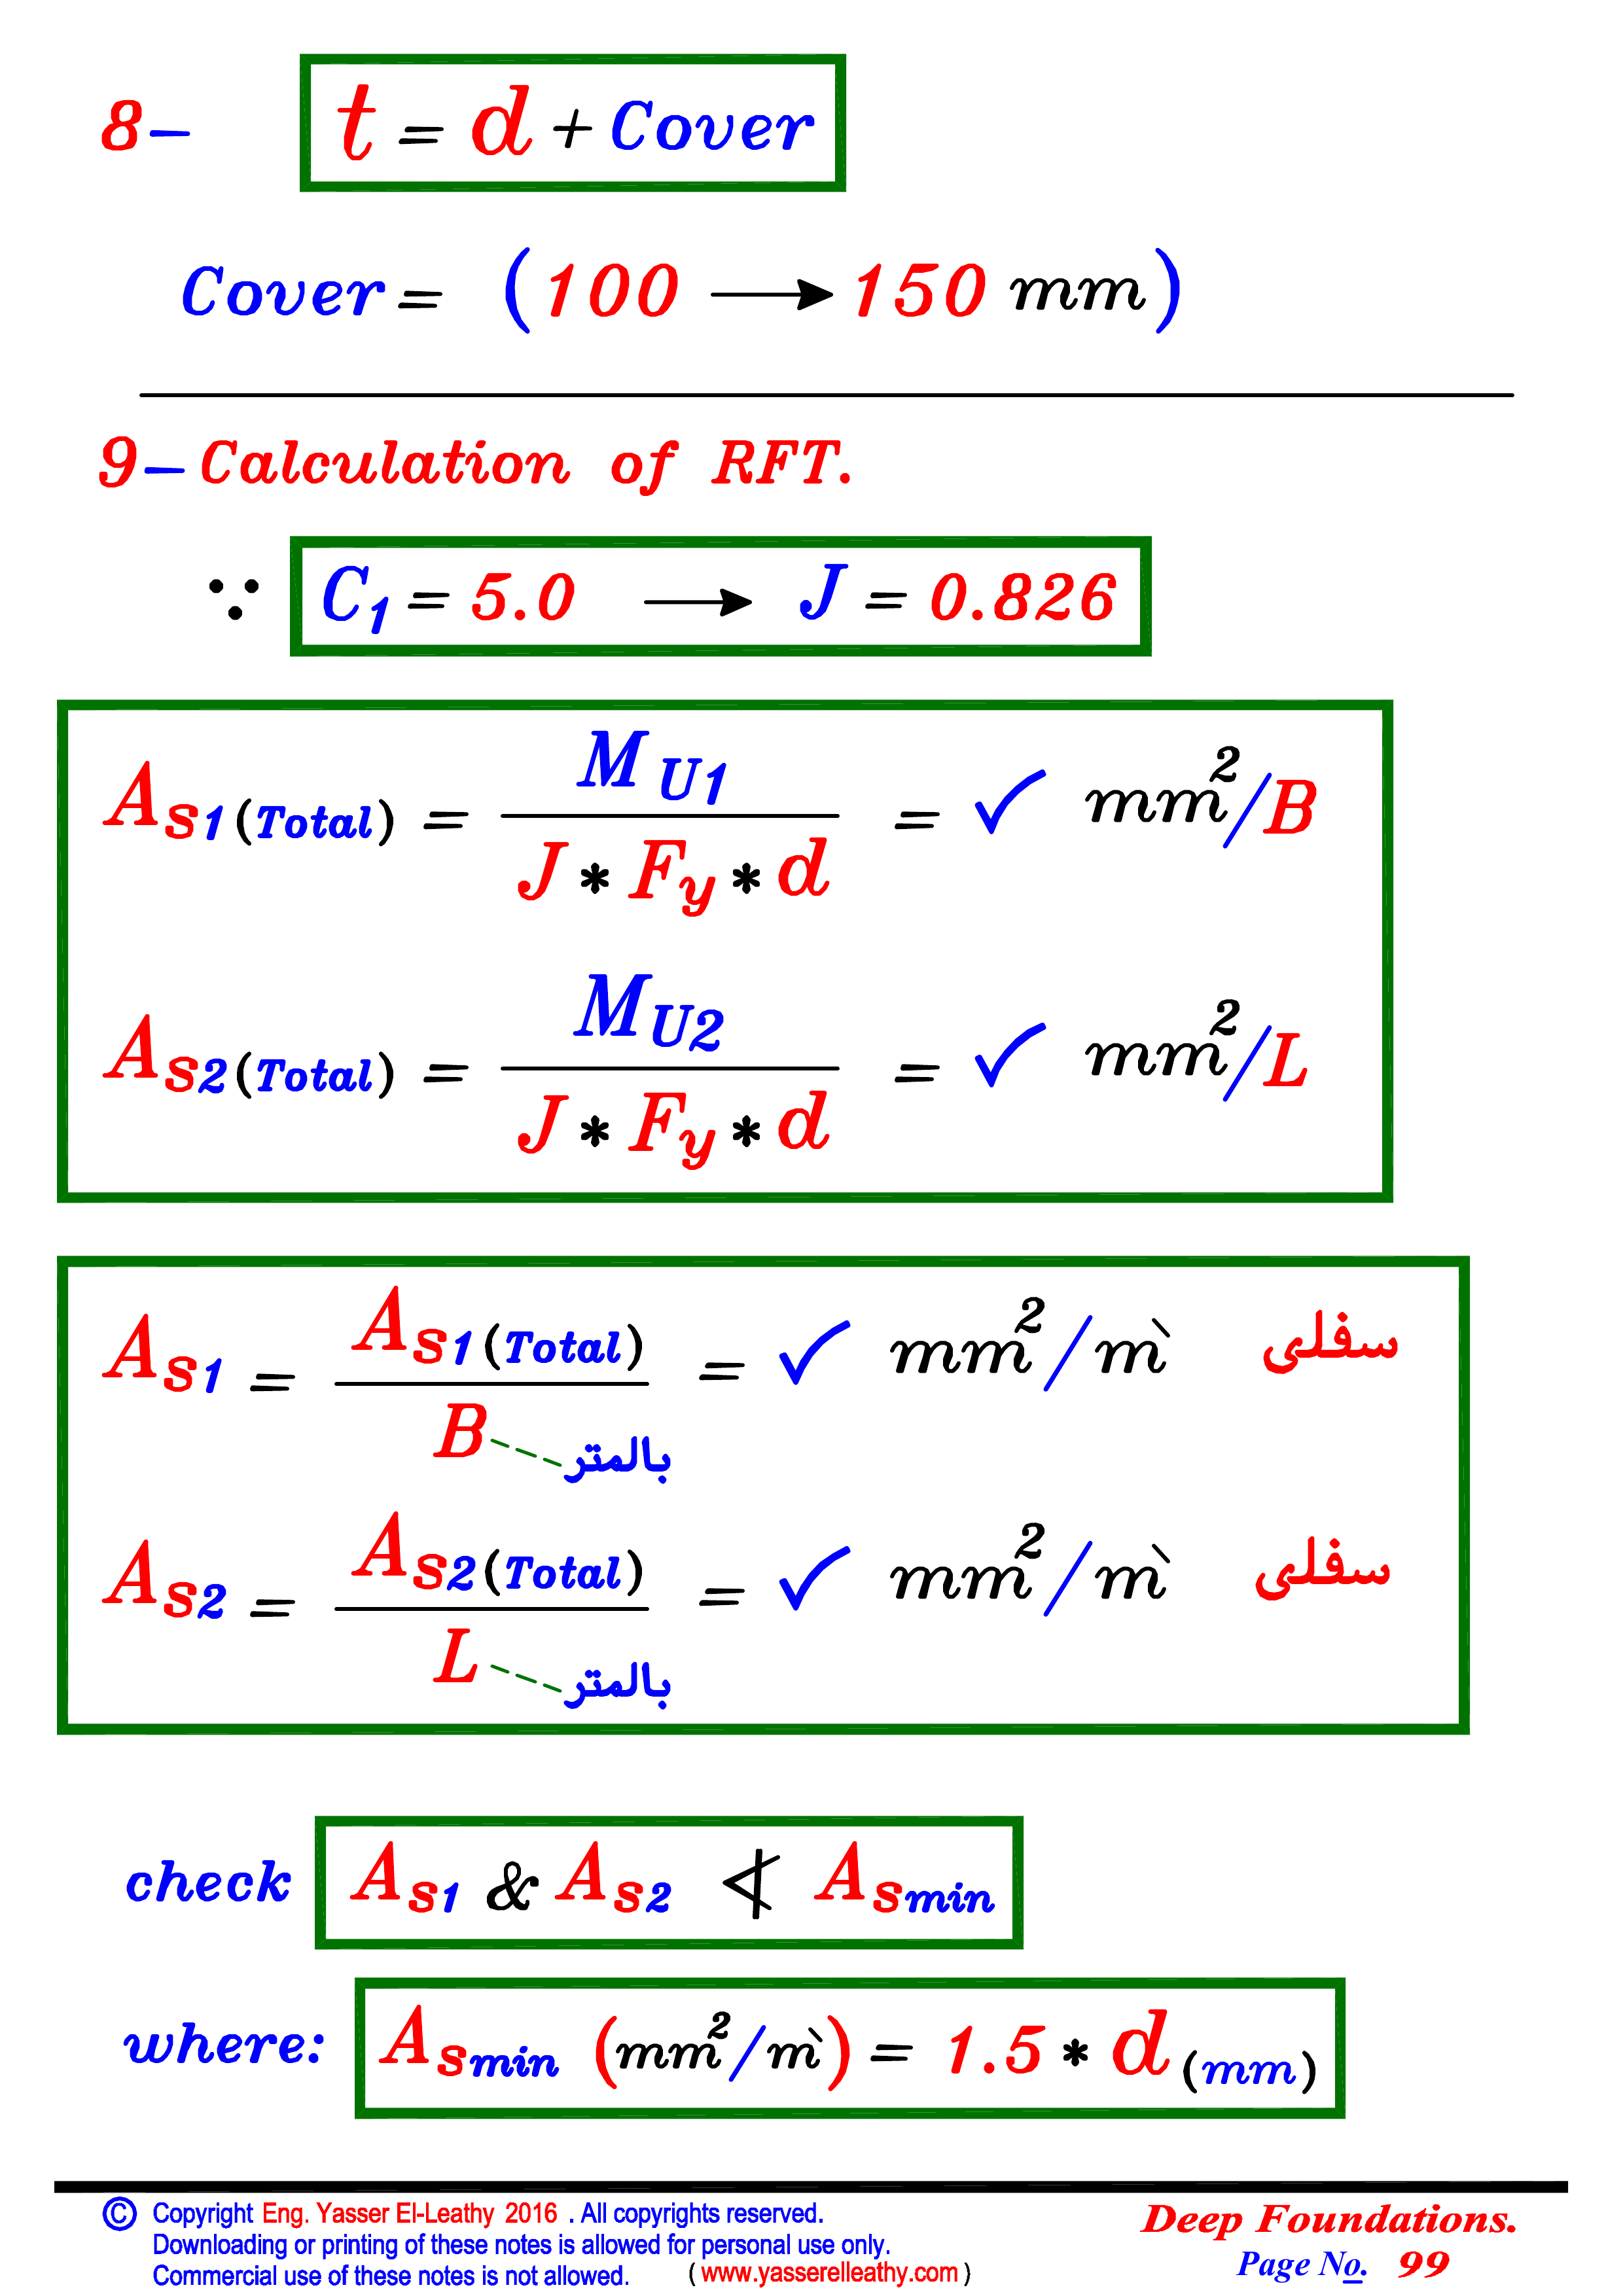 8- t = d + Cover
Cover = (100 → 150 mm)
9- Calculation of RFT.
∵ C1 = 5.0 → J = 0.826
As1(Total) = MU1 / J * Fy * d = ✓ mm²/B
As2(Total) = MU2 / J * Fy * d = ✓ mm²/L
As1 = As1(Total) / B = ✓ mm²/m` سفلى
بالمتر
As2 = As2(Total) / L = ✓ mm²/m` سفلى
بالمتر
check As1 & As2 ≮ Asmin
where: Asmin (mm²/m`) = 1.5 * d (mm)
© Copyright Eng. Yasser El-Leathy 2016 . All copyrights reserved.
Downloading or printing of these notes is allowed for personal use only.
Commercial use of these notes is not allowed. ( www.yasserelleathy.com )
Deep Foundations.
Page No. 99